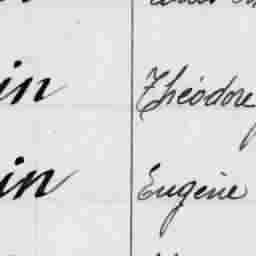 in Théodore
in Eugène